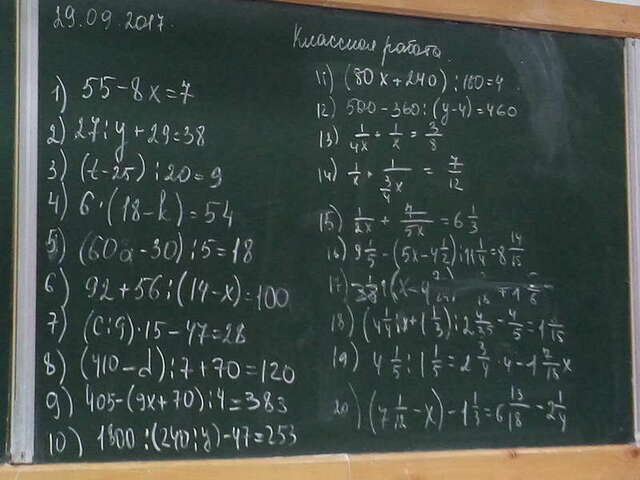 29.09.2017.
Классная работа.
1) 55-8x=7
2) 27:y+29=38
3) (t-25):20=9
4) 6·(18-k)=54
5) (60a-30):5=18
6) 92+56:(14-x)=100
7) (c:9)·15-47=28
8) (410-d):7+70=120
9) 405-(9x+70):4=383
10) 1800:(240:y)-47=253
11) (80x+240):180=4
12) 500-360:(y-4)=460
13) 1/4x + 1/x = 3/8
14) 1/x + 1/(3/4 x) = 7/12
15) 1/2x + 7/5x = 6 1/3
16) 9 1/5 - (5x-4 1/2):11 1/4=8 14/15
17)
18)
19) 4 1/5 : 1 1/5 = 2 3/4 · 4 - 1 7/15 x
20) (7 1/12 - x) - 1 1/3 = 6 13/18 - 2 1/4